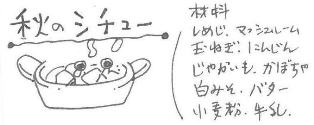 秋のシチュー
材料
しめじ、マッシュルーム
玉ねぎ、にんじん
じゃがいも、かぼちゃ
白みそ、バター
小麦粉、牛乳